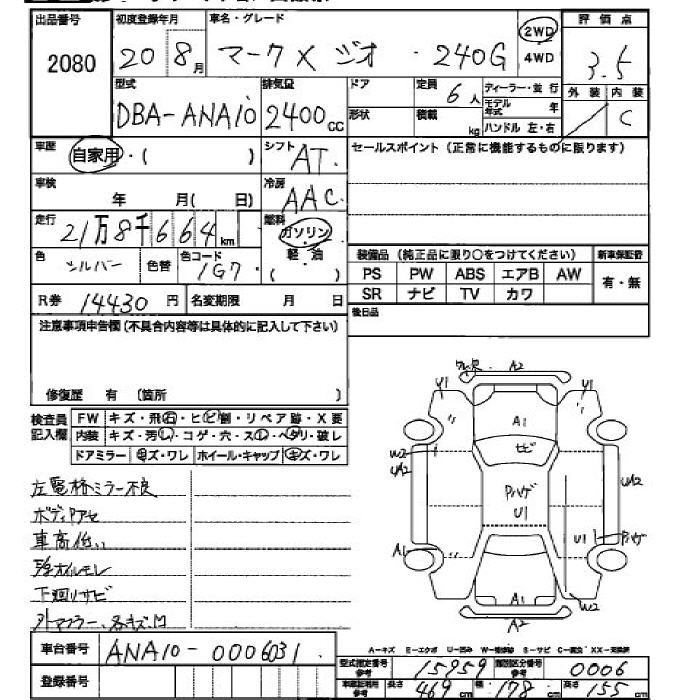 出品番号 初度登録年月 車名・グレード 2WD 4WD 評価点
2080 20 8月 マークX ジオ ・ 240G 3.5
型式 排気量 ドア 定員 6人 ディーラー・並行 外装 内装
DBA-ANA10 2400cc 形状 積載 kg モデル年式 年 C
ハンドル 左・右
車歴 自家用・( ) シフト AT. セールスポイント (正常に機能するものに限ります)
車検 年 月(日) 冷房 AAC
走行 21万8千664km 燃料 ガソリン・軽油 ( )
色 シルバー 色替 色コード 1G7 装備品 (純正品に限り○をつけてください) 新車保証書
PS PW ABS エアB AW 有・無
SR ナビ TV カワ
R券 14430円 名変期限 月 日 後日品
注意事項申告欄(不具合内容等は具体的に記入して下さい)
修復歴 有 (箇所 )
検査員記入欄 FW キズ・飛石・ヒビ割・リペア跡・X要
内装 キズ・汚レ・コゲ・穴・スレ・ヘタリ・破レ
ドアミラー キズ・ワレ ホイール・キャップ キズ・ワレ
A2
U1 U1
A1
サビ
W2 UA2 UA2
PハゲU1
A1 U1 Pハゲ
W2
A1
A2
左電格ミラー不良
ボディPアセ
車高低い
下廻りサビ
車台番号 ANA10-0006031
A-キズ E-エクボ U-凹み
登録番号
型式指定番号 参考 15959 類別区分番号 参考 0006
長さ 469cm 幅 178cm 高さ 155cm